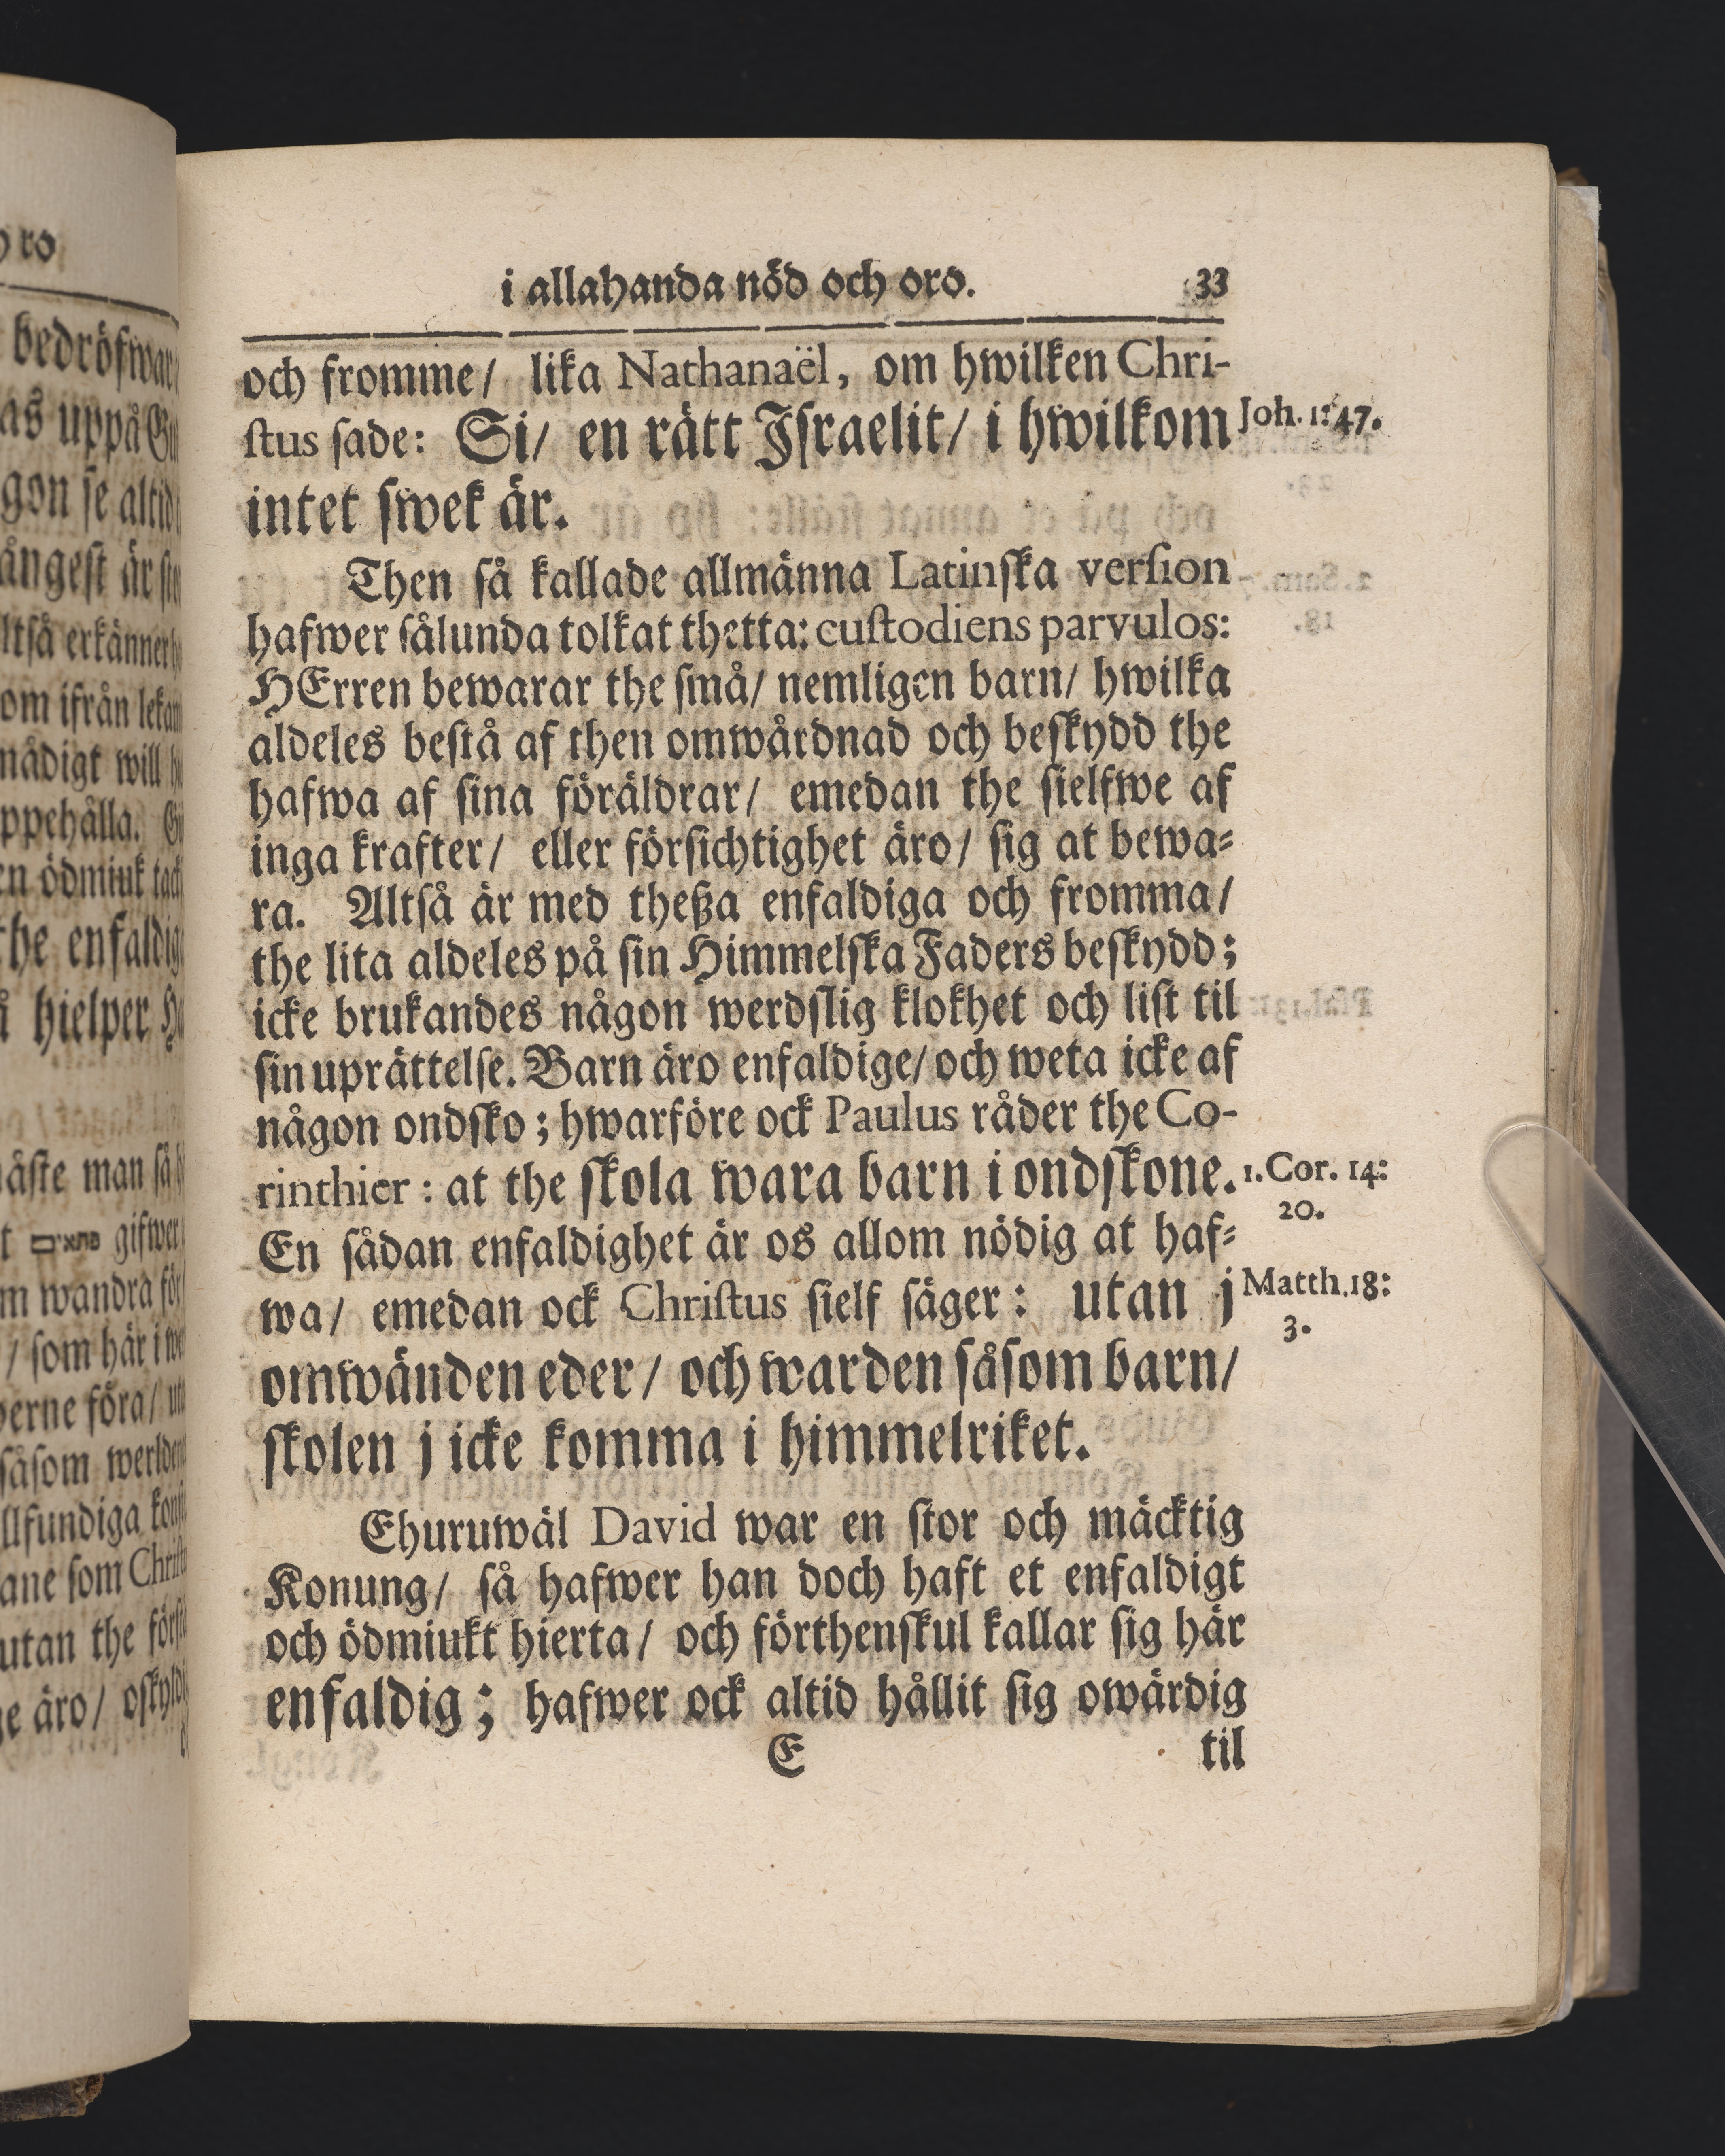 i allahanda nöd och oro. 33
och fromme/ lika Nathanaël, om hwilken Chri-
ſtus ſade: Si/ en rätt Iſraelit/ i hwilkom Joh. 1:47.
intet ſwek är.
Then ſå kallade allmänna Latinſka verſion
hafwer ſålunda tolkat thetta: cuſtodiens parvulos:
HErren bewarar the ſmå/ nemligen barn/ hwilka
aldeles beſtå af then omwårdnad och beſkydd the
hafwa af ſina föräldrar/ emedan the ſielfwe af
inga krafter/ eller förſichtighet äro/ ſig at bewa⸗
ra. Altſå är med theßa enfaldiga och fromma/
the lita aldeles på ſin Himmelſka Faders beſkydd;
icke brukandes någon werdſlig klokhet och liſt til
ſin uprättelſe. Barn äro enfaldige/ och weta icke af
någon ondſko; hwarföre ock Paulus råder the Co-
rinthier: at the ſkola wara barn i ondſkone. 1. Cor. 14:
20.
En ſådan enfaldighet är os allom nödig at haf⸗
wa/ emedan ock Chriſtus ſielf ſäger: utan j Matth. 18:
3.
omwänden eder/ och warden ſåſom barn/
ſkolen j icke komma i himmelriket.
Ehuruwäl David war en ſtor och mäcktig
Konung/ ſå hafwer han doch haft et enfaldigt
och ödmiukt hierta/ och förthenſkul kallar ſig här
enfaldig; hafwer ock altid hållit ſig owärdig
E til